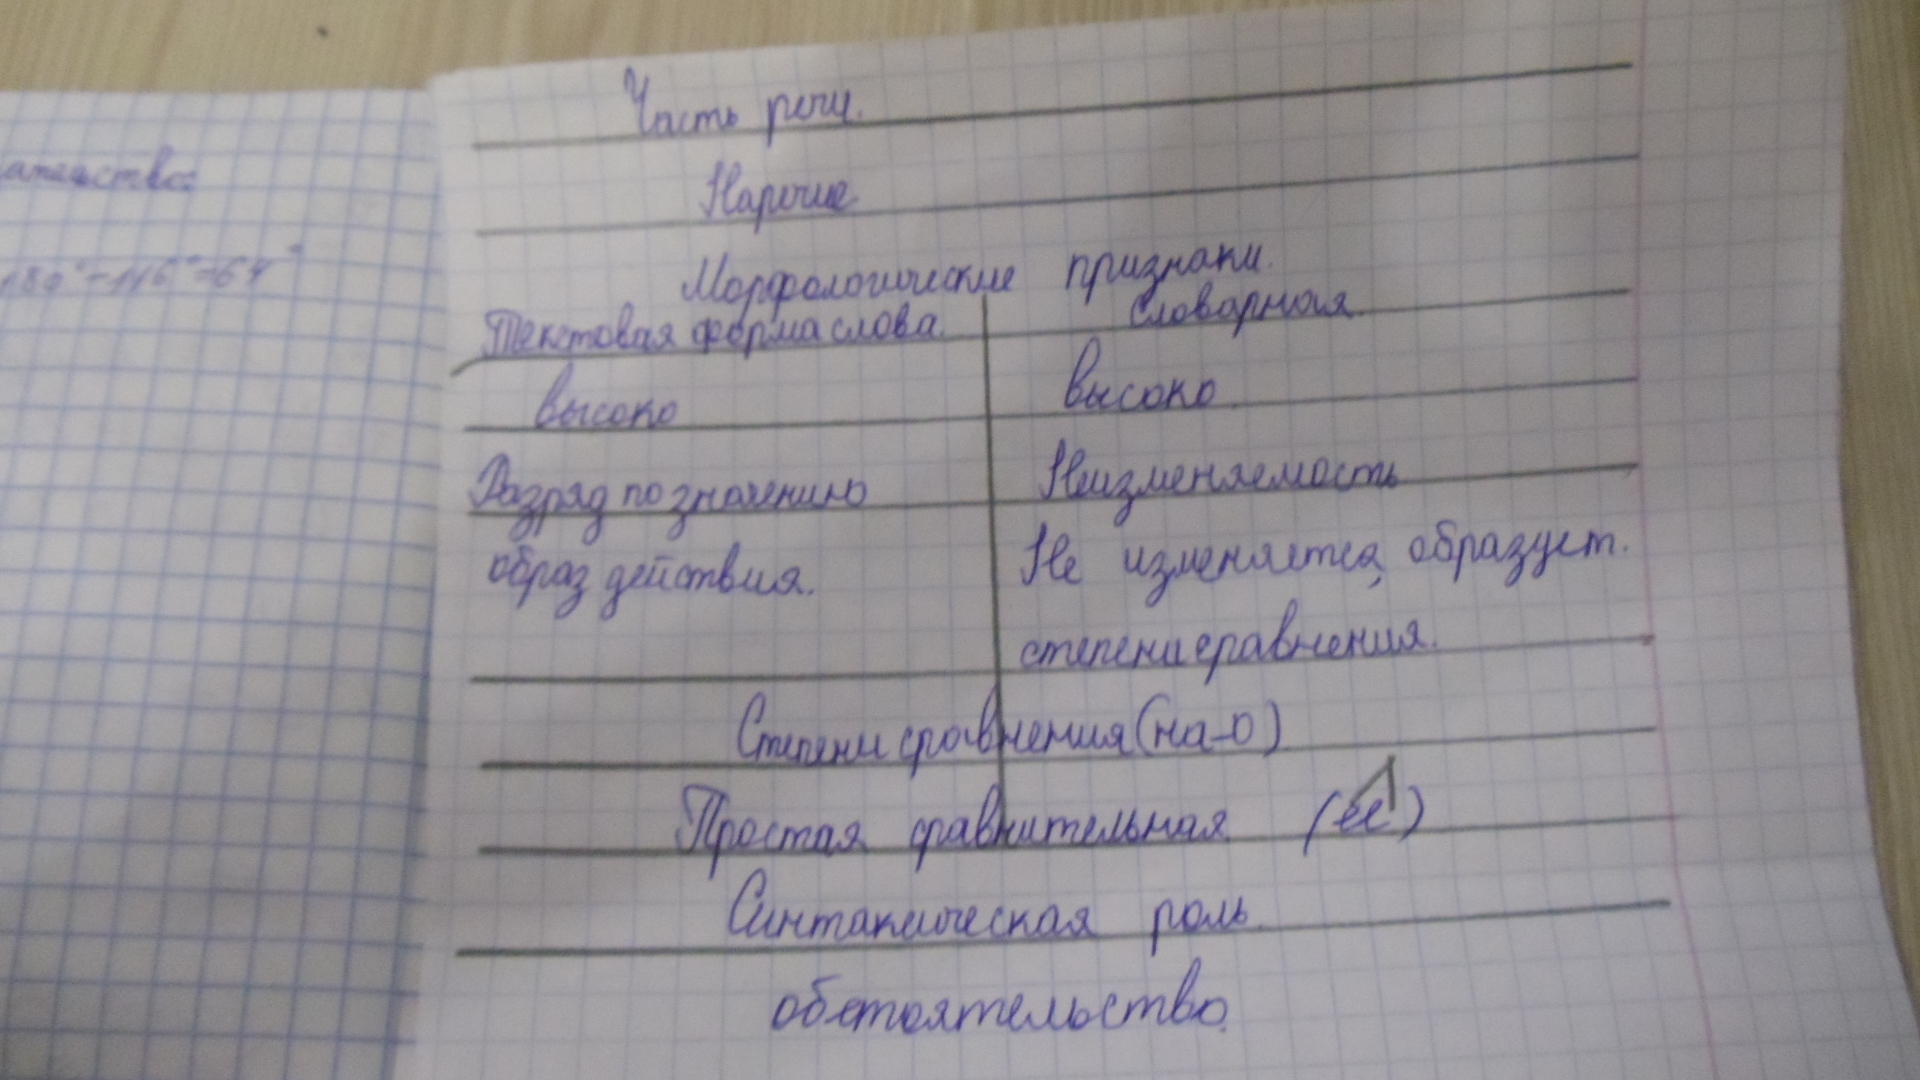 Часть речи.
Наречие
Морфологические признаки.
Текстовая форма слова. Словарная.
высоко высоко
Разряд по значению Неизменяемость
образ действия. Не изменяется, образует.
степени сравнения.
Степени сравнения (на-о)
Простая сравнительная (ее)
Синтаксическая роль.
обстоятельство.
180°-116°=64°